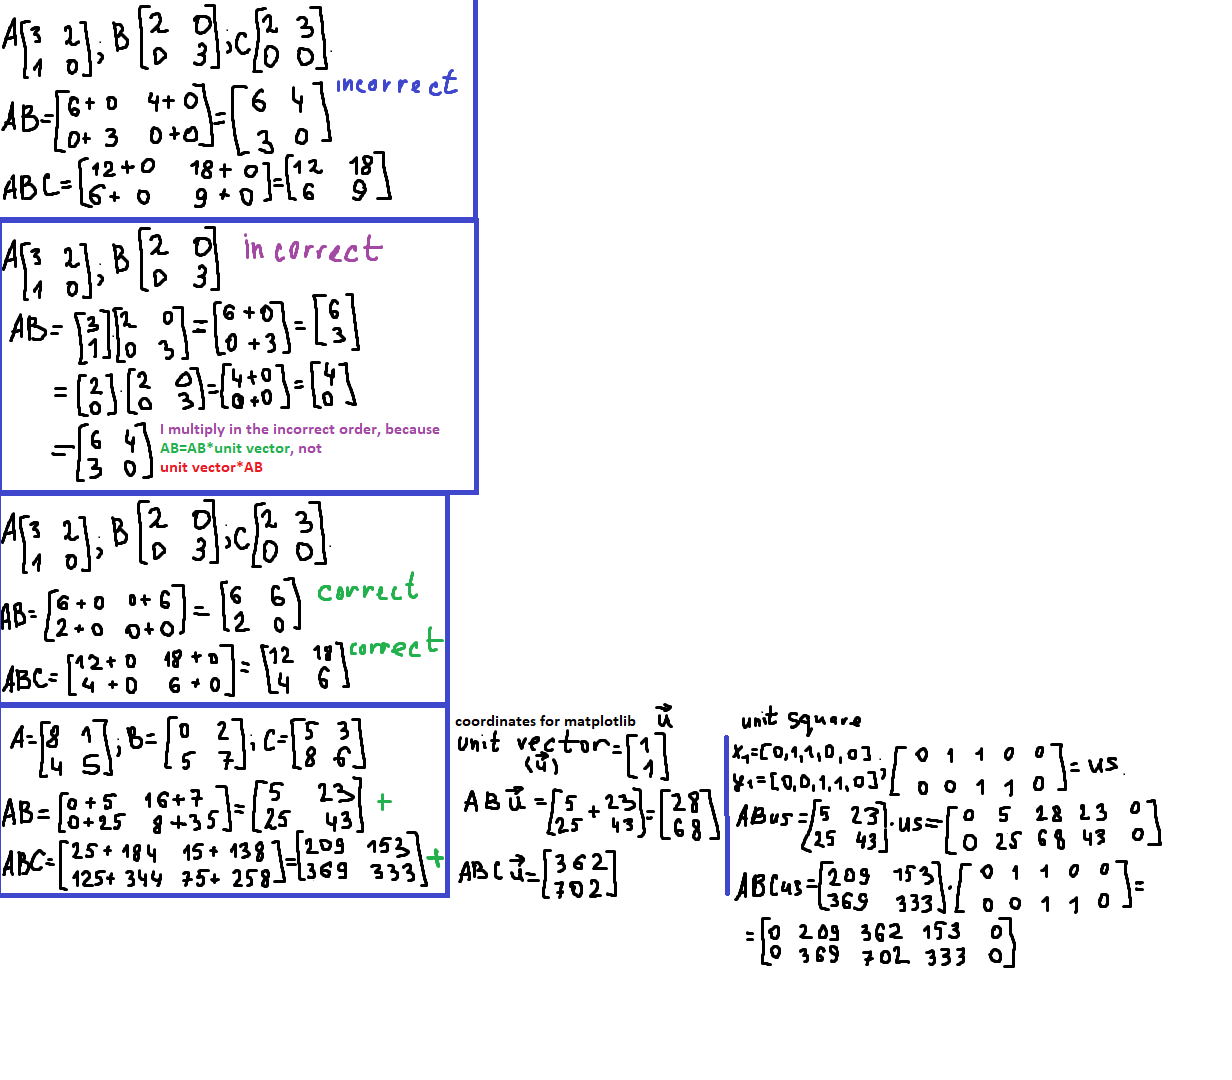 A[3 2; 1 0]; B[2 0; 0 3]; C[2 3; 0 0].
incorrect
AB=[6+0 4+0; 0+3 0+0]=[6 4; 3 0]
ABC=[12+0 18+0; 6+0 9+0]=[12 18; 6 9]
A[3 2; 1 0]; B[2 0; 0 3] incorrect
AB=[3; 1][2 0; 0 3]=[6+0; 0+3]=[6; 3]
=[2; 0]·[2 0; 0 3]=[4+0; 0+0]=[4; 0]
=[6 4; 3 0]
I multiply in the incorrect order, because
AB=AB*unit vector, not
unit vector*AB
A[3 2; 1 0]; B[2 0; 0 3]; C[2 3; 0 0].
AB=[6+0 0+6; 2+0 0+0]=[6 6; 2 0] correct
ABC=[12+0 18+0; 4+0 6+0]=[12 18; 4 6] correct
A=[8 1; 4 5]; B=[0 2; 5 7]; C=[5 3; 8 6]
AB=[0+5 16+7; 0+25 8+35]=[5 23; 25 43] +
ABC=[25+184 15+138; 125+344 75+258]=[209 153; 369 333] +
coordinates for matplotlib u⃗
unit vector=[1; 1]
(u⃗)
ABu⃗=[5+23; 25 43]=[28; 68]
ABCu⃗=[362; 702]
unit square
x₁=[0,1,1,0,0].
y₁=[0,0,1,1,0]; [0 1 1 0 0; 0 0 1 1 0]=us.
ABus=[5 23; 25 43]·us=[0 5 28 23 0; 0 25 68 43 0]
ABCus=[209 153; 369 333]·[0 1 1 0 0; 0 0 1 1 0]=
=[0 209 362 153 0; 0 369 702 333 0]